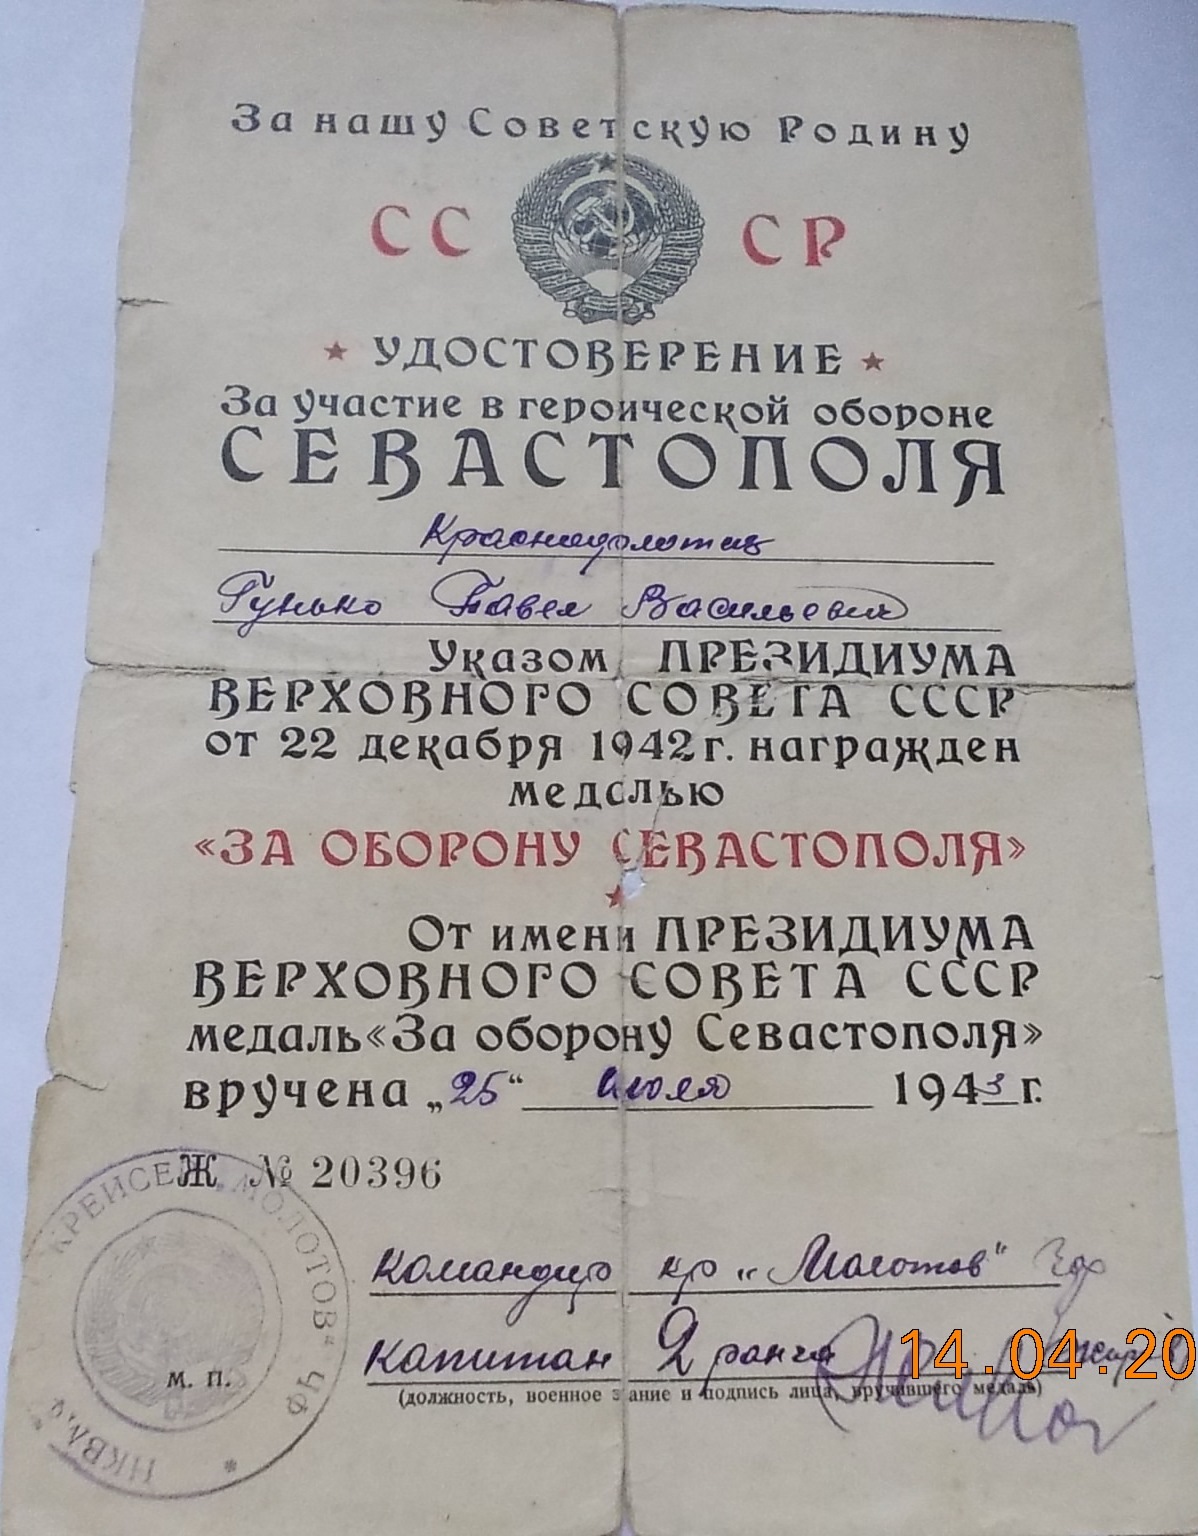 За нашу Советскую Родину
СССР
УДОСТОВЕРЕНИЕ
За участие в героической обороне
СЕВАСТОПОЛЯ
Краснофлотец
Гунько Павел Васильевич
Указом ПРЕЗИДИУМА
ВЕРХОВНОГО СОВЕТА СССР
от 22 декабря 1942 г. награжден
медалью
«ЗА ОБОРОНУ СЕВАСТОПОЛЯ»
От имени ПРЕЗИДИУМА
ВЕРХОВНОГО СОВЕТА СССР
медаль «За оборону Севастополя»
вручена „25“ июля 1943 г.
Ж № 20396
КРЕЙСЕР „МОЛОТОВ“ ЧФ
НКВМФ
Командир кр „Молотов“
капитан 2 ранга
14.04.20
(должность, военное звание и подпись лица, вручившего медаль)
М. П.